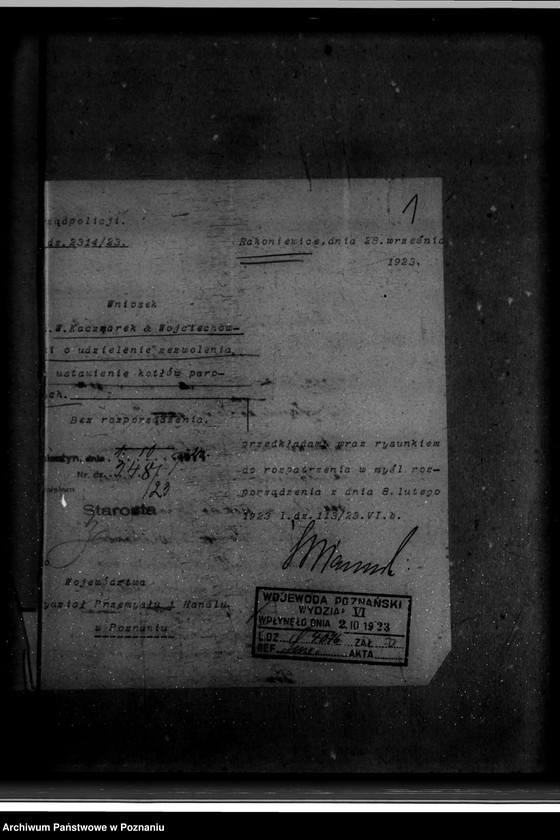 1
ządpolicji.
dz.2314/23.
Rakoniewice,dnia 28.września
1923.
Wniosek
.W.Kaczmarek & Wojciechow-
i o udzielenie zezwolenia
ustawienie kotłów paro-
ch.
Bez rozporządzenia.
dnia
Nr. dz.
/23
Starosta
przedkładam wraz rysunkiem
do rozpatrzenia w myśl roz-
porządzenia z dnia 8.lutego
1923 I.dz.113/23.VI.b.
Województwa
ydział Przemysłu i Handlu
w Poznaniu
WOJEWODA POZNAŃSKI
WYDZIAŁ VI
WPŁYNĘŁO DNIA 2.10 1923
L.DZ. ZAŁ.
REF. AKTA
Archiwum Państwowe w Poznaniu